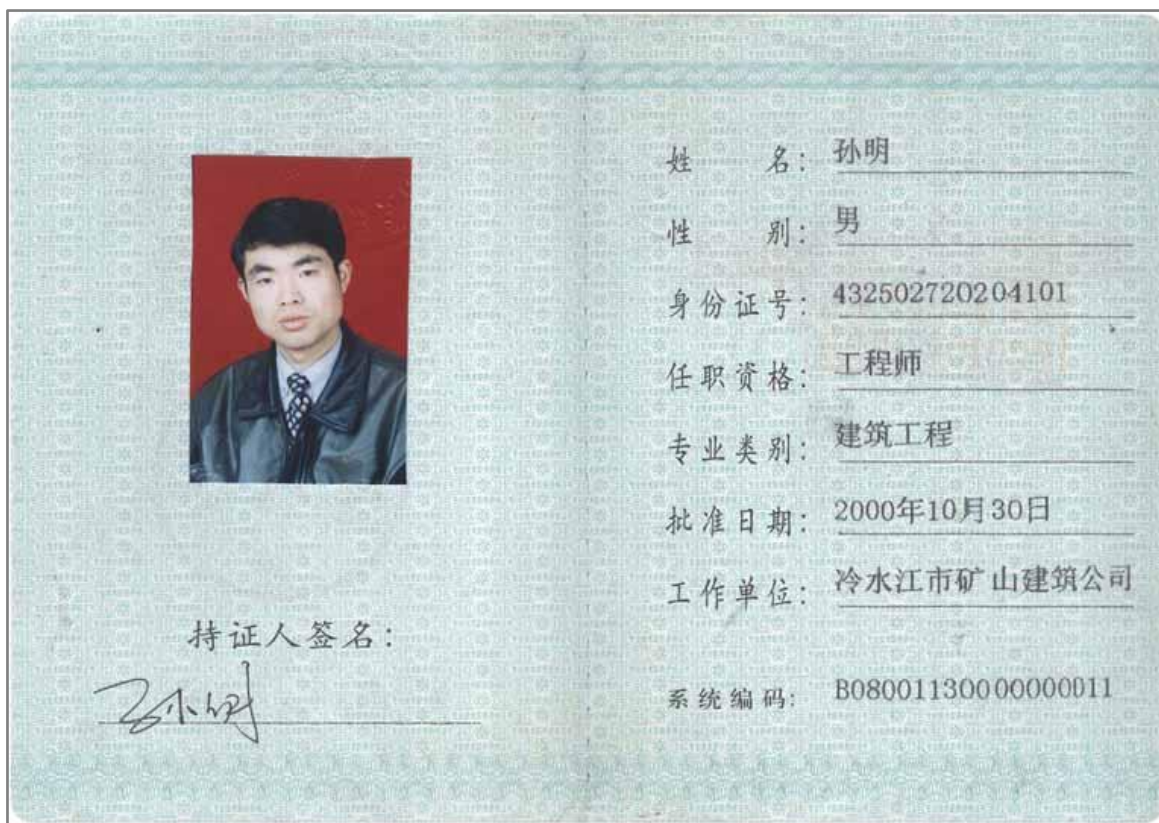 持证人签名：
孙明
姓名：孙明
性别：男
身份证号：432502720204101
任职资格：工程师
专业类别：建筑工程
批准日期：2000年10月30日
工作单位：冷水江市矿山建筑公司
系统编码：B08001130000000011